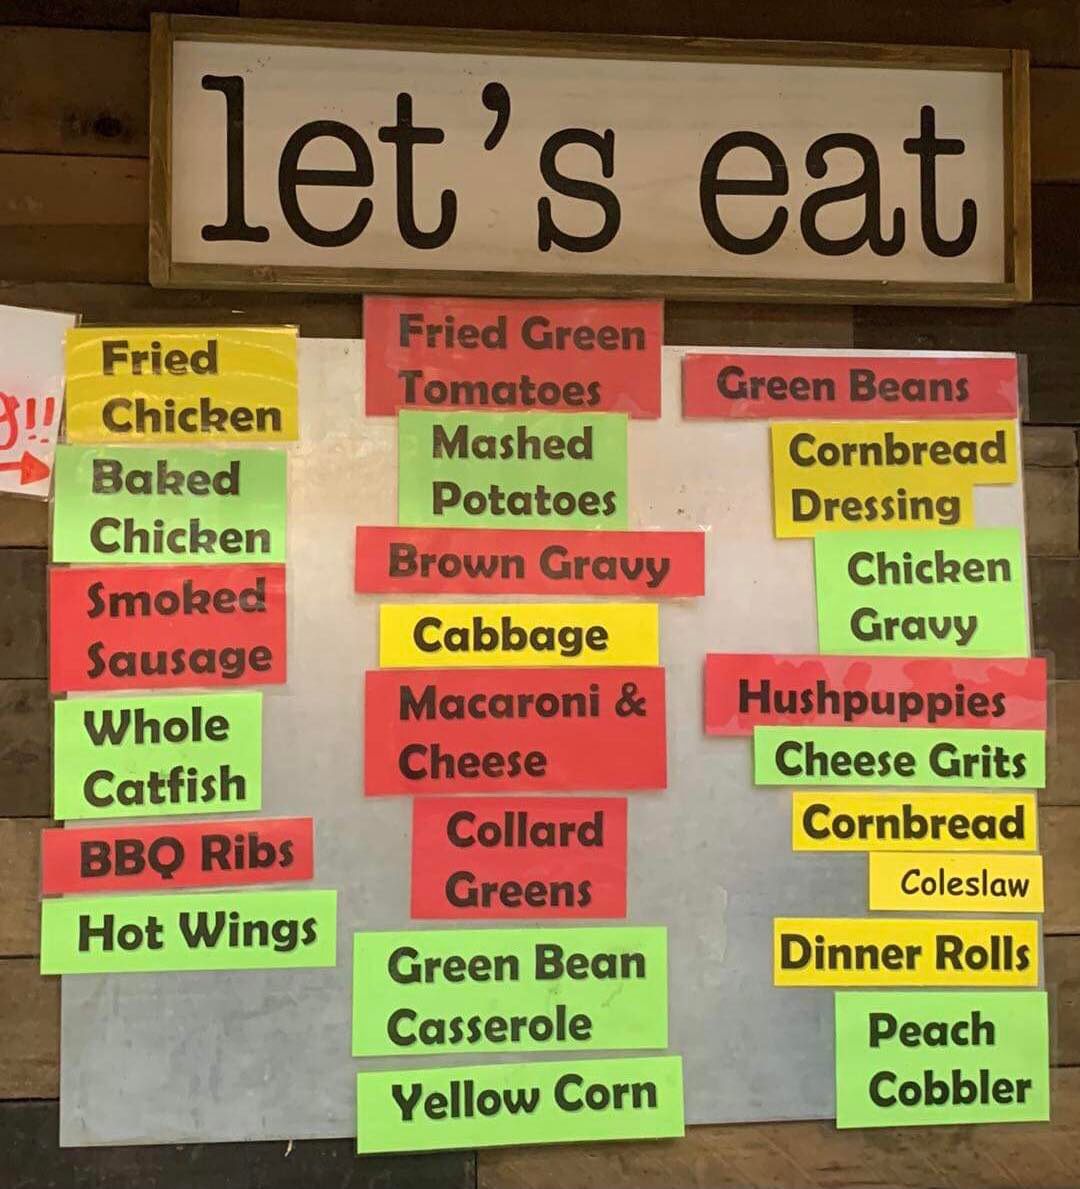 let's eat
Fried
Chicken
Baked
Chicken
Smoked
Sausage
Whole
Catfish
BBQ Ribs
Hot Wings
Fried Green
Tomatoes
Mashed
Potatoes
Brown Gravy
Cabbage
Macaroni &
Cheese
Collard
Greens
Green Bean
Casserole
Yellow Corn
Green Beans
Cornbread
Dressing
Chicken
Gravy
Hushpuppies
Cheese Grits
Cornbread
Coleslaw
Dinner Rolls
Peach
Cobbler